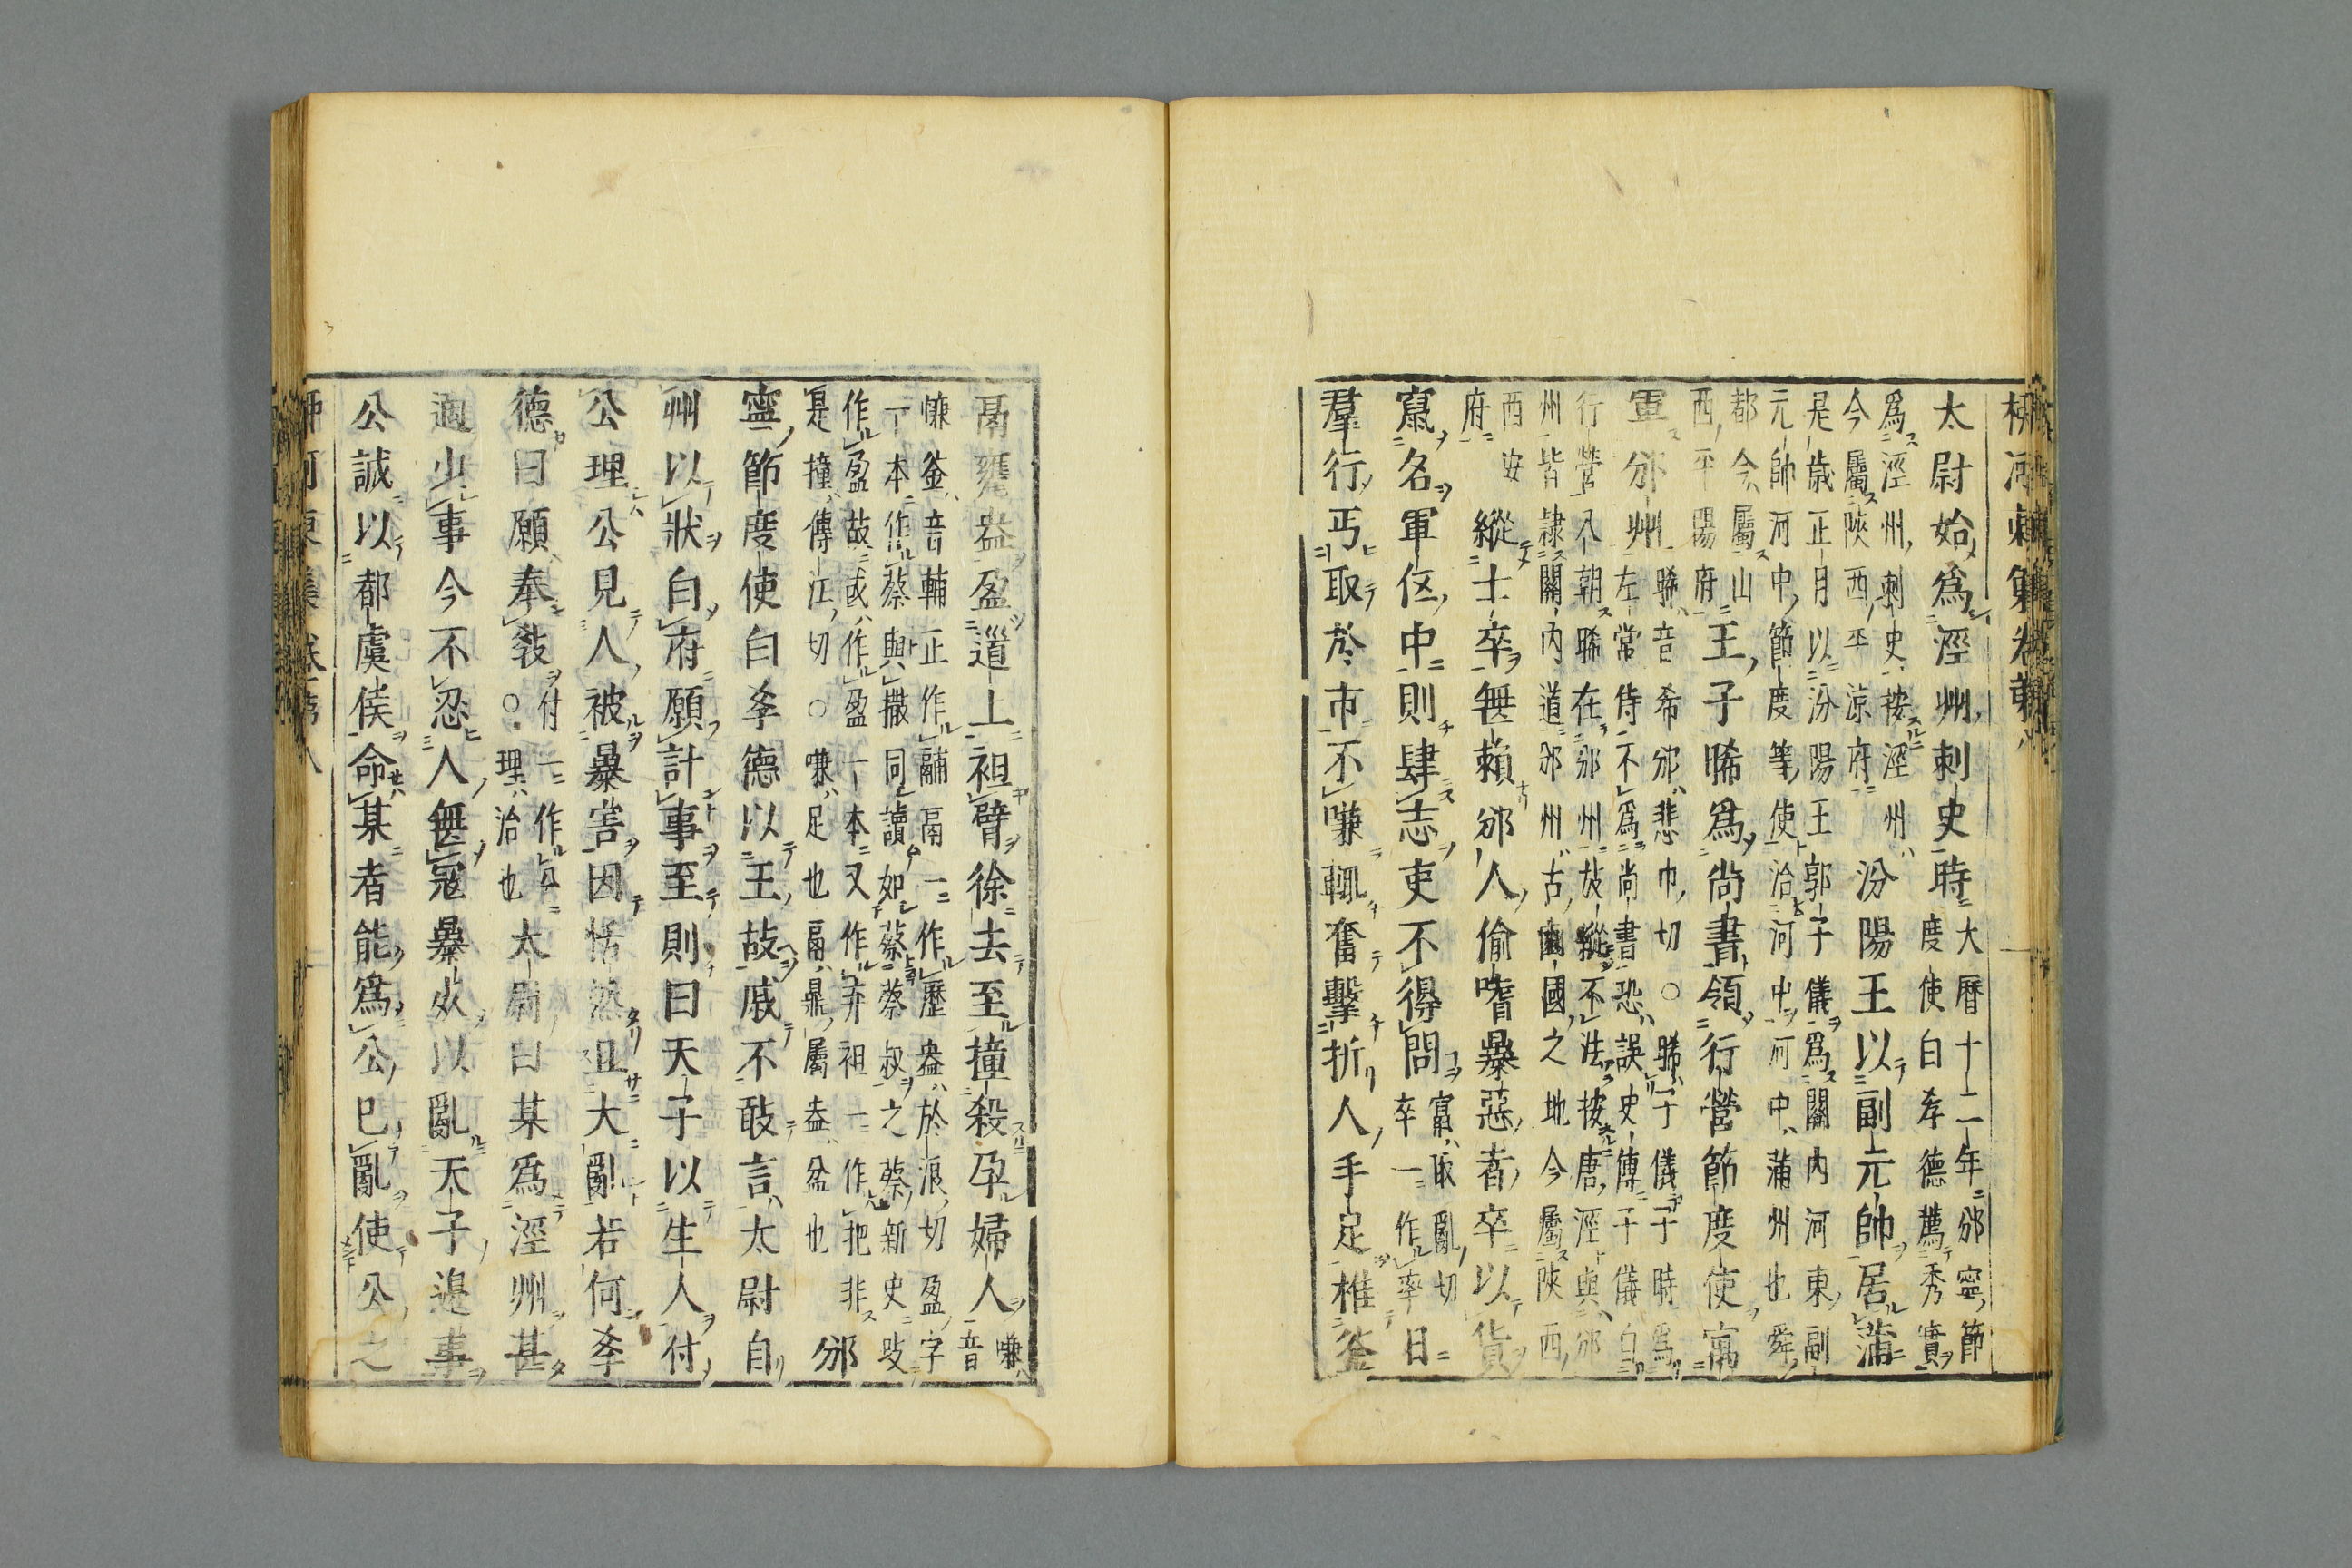 太尉始爲涇州刺史時大曆十二年邠寧節
度使白孝德薦秀實
爲涇州刺史按涇州
今屬陝西平涼府汾陽王以副元帥居蒲
是歳正月以汾陽王郭子儀爲關内河東副
元帥河中節度等使治河中河中蒲州也舜
都今屬山
西平陽府王子晞爲尚書領行營節度使寓
軍邠州晞音希邠悲巾切○晞子儀子時爲
左常侍不爲尚書恐誤史傳子儀自
行營入朝晞在邠州故縱不法按唐涇與邠
州皆隷關内道邠州古豳國之地今屬陝西
西安
府縱士卒無賴邠人偷嗜暴惡者卒以貨
竄名軍伍中則肆志吏不得問竄取亂切
卒一作率日
羣行丐取於市不嗛輒奮擊折人手足椎釜
鬲甕盎盈道上袒臂徐去至撞殺孕婦人嗛音
慊釜音輔一正作䩉鬲一作歷盎於浪切盈字
一本作蔡與撒同讀如蔡蔡叔之蔡新史
作盈故或作盈一本又作弃袒一作把非
是撞傳江切○嗛足也鬲鼎屬盎盆也邠
寧節度使白孝德以王故戚不敢言太尉自
州以狀白府願計事至則曰天子以生人付
公理公見人被暴害因恬然且大亂若何孝
德曰願奉敎付一作
理治也太尉曰某爲涇州甚
適少事今不忍人無寇暴死以亂天子邊事
公誠以都虞候命某者能爲公已亂使公之